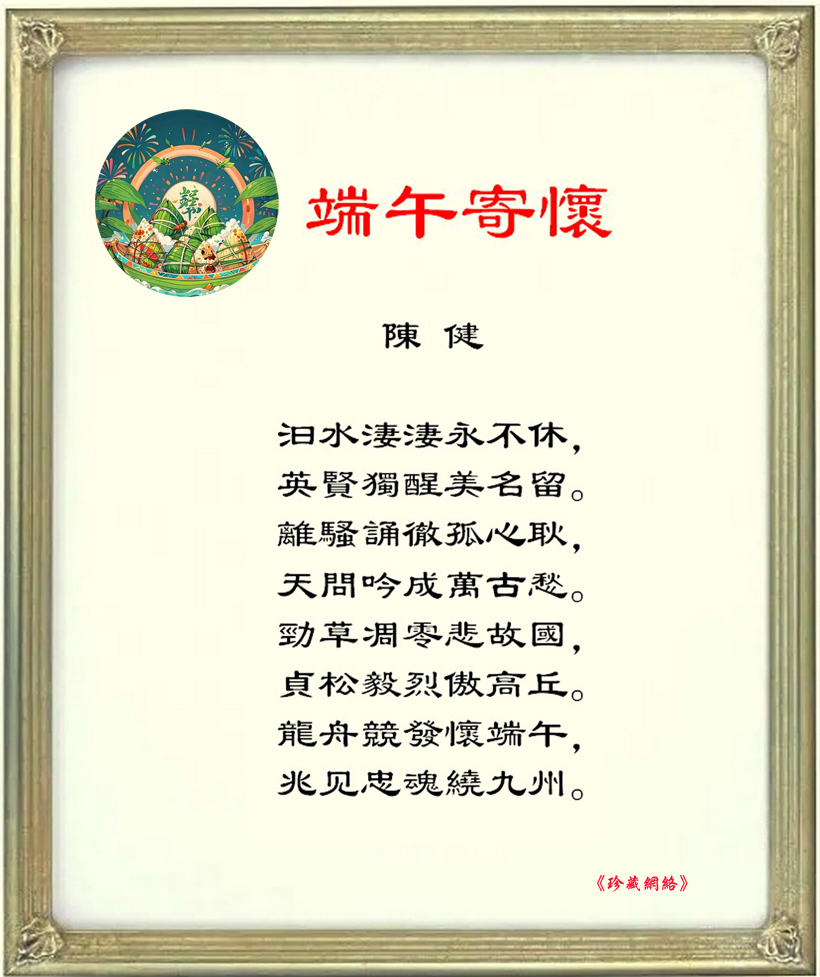 端午寄懷
陳 健
汨水淒淒永不休，
英賢獨醒美名留。
離騷誦徹孤心耿，
天問吟成萬古愁。
勁草凋零悲故國，
貞松毅烈傲高丘。
龍舟競發懷端午，
兆见忠魂繞九州。
《珍藏網絡》